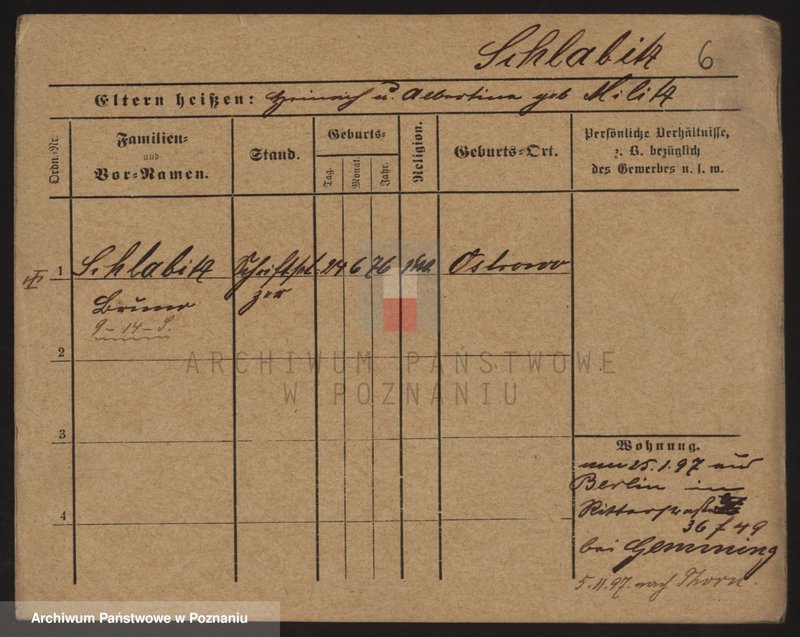 Schlabitz 6
Eltern heißen: Heinrich u. Albertine geb Militz
Ordn.-Nr.
Familien-
und
Vor-Namen.
Stand.
Geburts-
Tag.
Monat.
Jahr.
Religion.
Geburts-Ort.
Persönliche Verhältnisse,
z. B. bezüglich
des Gewerbes u. s. w.
1 Schlabitz Schriftset- 24 6 76 Ostrowo
Bruno zer
9-14-S.
2
ARCHIWUM PAŃSTWOWE
W POZNANIU
3
4
Wohnung.
am 25.1.97 aus
Berlin in
Ritterstraße
36 f 49
bei Gemming
5.11.97. nach Thorn.
Archiwum Państwowe w Poznaniu